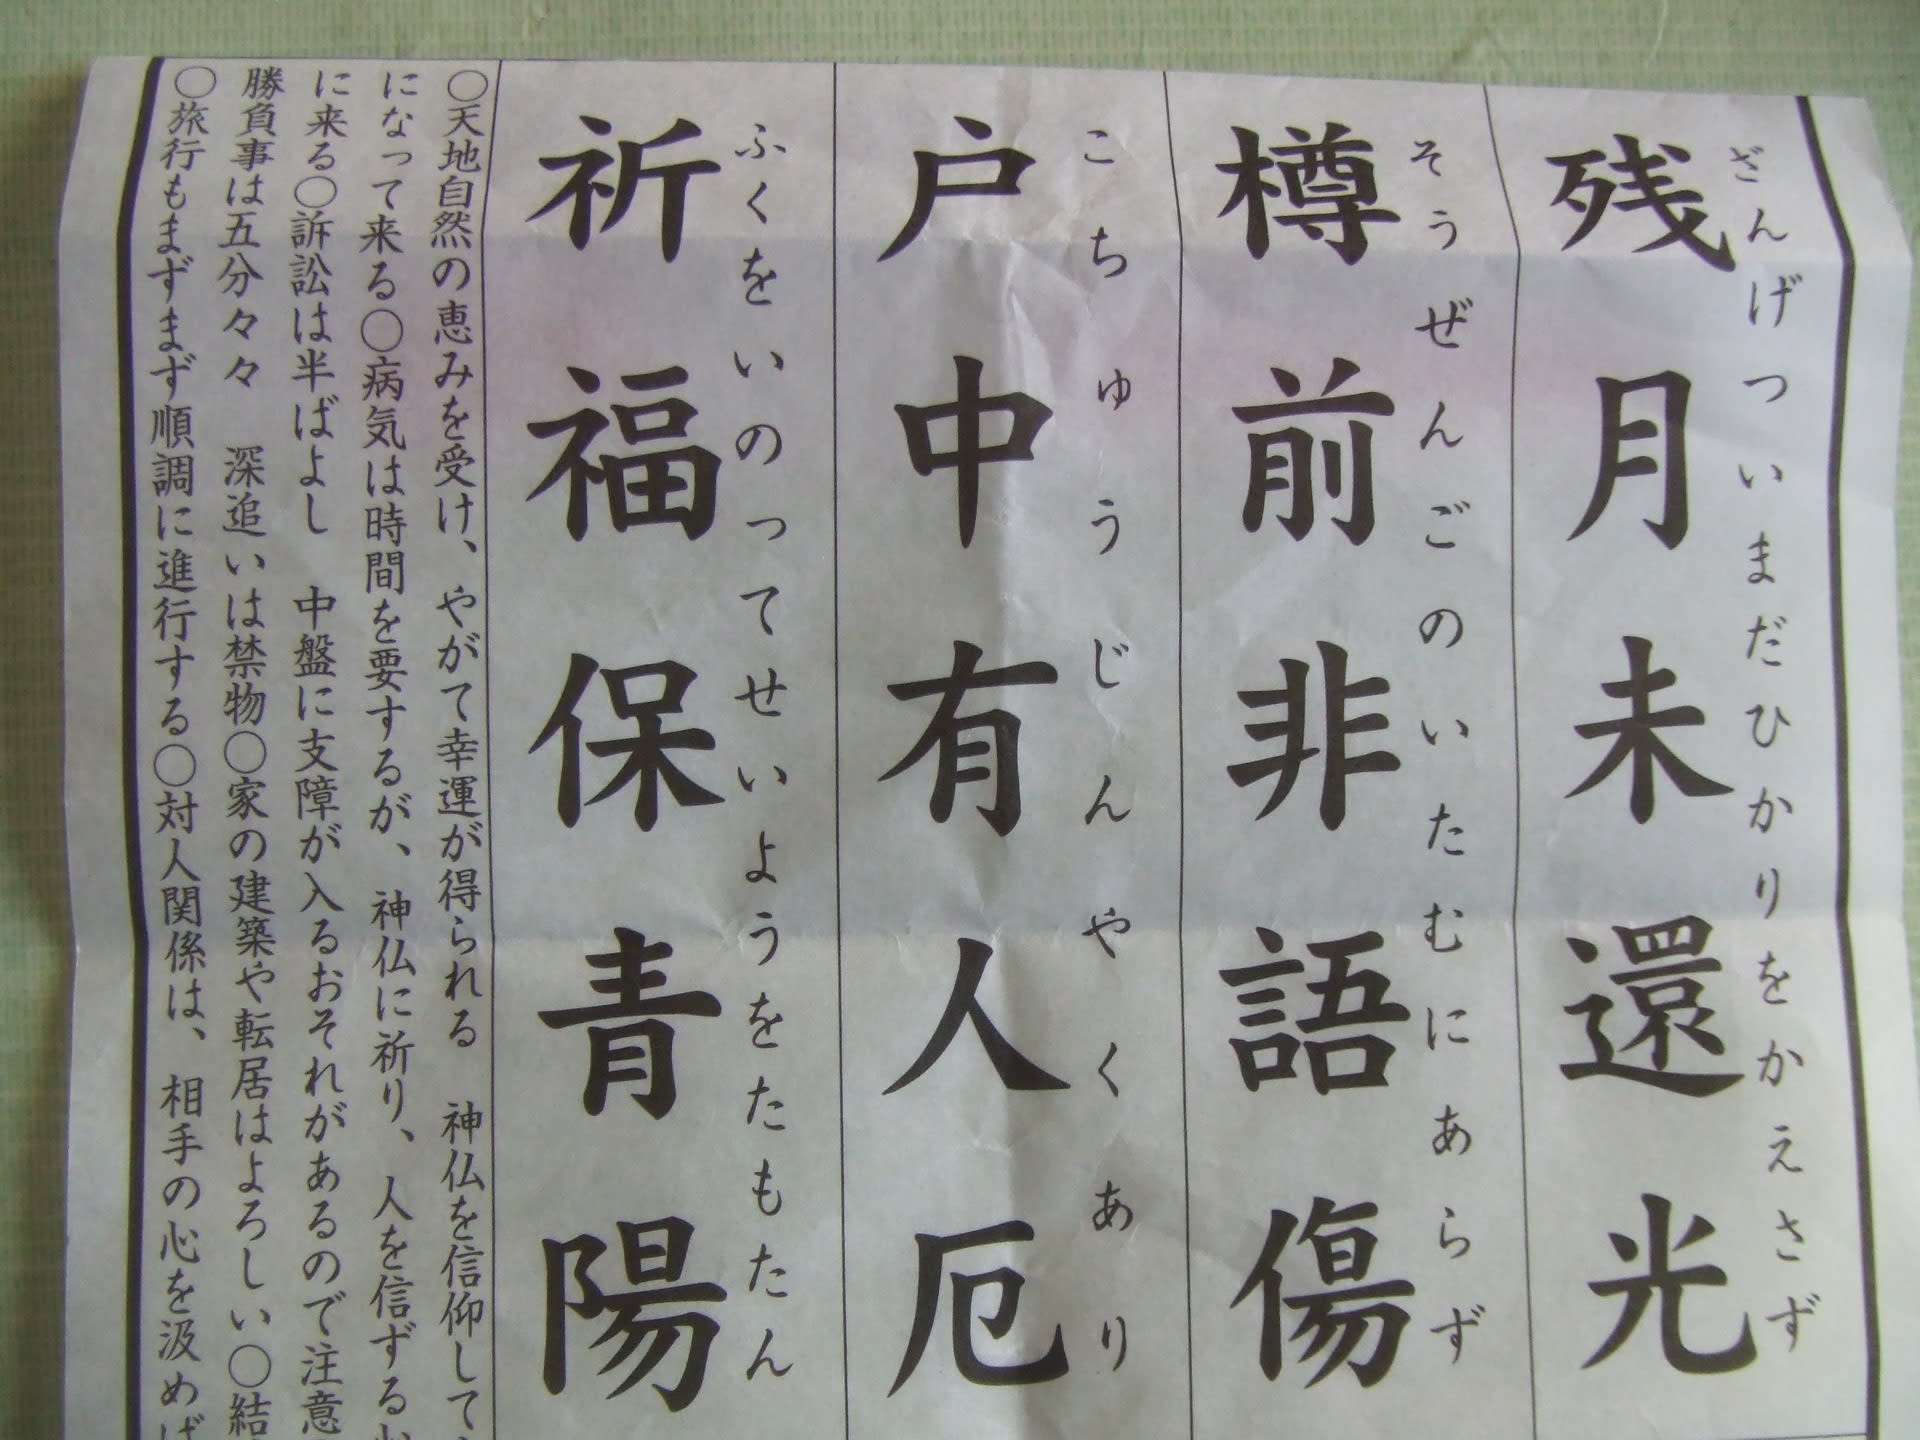 残月未還光
ざんげついまだひかりをかえさず
樽前非語傷
そうぜんごのいたむにあらず
戸中有人厄
こちゅうじんやくあり
祈福保青陽
ふくをいのってせいようをたもたん
○天地自然の恵みを受け、やがて幸運が得られる　神仏を信仰して
になって来る○病気は時間を要するが、神仏に祈り、人を信ずる
に来る○訴訟は半ばよし　中盤に支障が入るおそれがあるので注意
勝負事は五分々々　深追いは禁物○家の建築や転居はよろしい○結
○旅行もまずまず順調に進行する○対人関係は、相手の心を汲めば